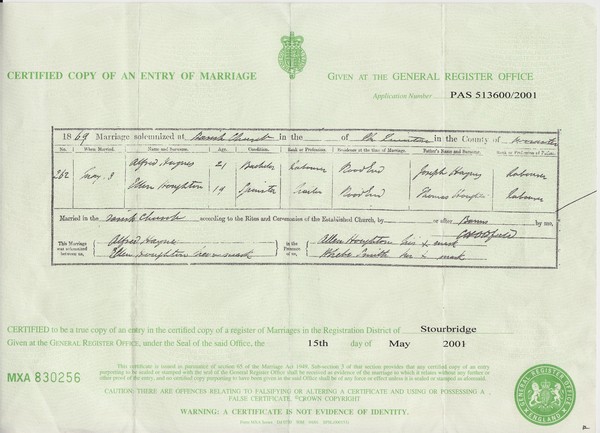 CERTIFIED COPY OF AN ENTRY OF MARRIAGE
GIVEN AT THE GENERAL REGISTER OFFICE
Application Number PAS 513600/2001
1869 Marriage solemnized at Parish Church in the of in the County of Worcester
No. When Married. Name and Surname. Age. Condition. Rank or Profession. Residence at the time of Marriage. Father's Name and Surname. Rank or Profession of Father.
262 May 3 Alfred Haynes 21 Bachelor Labourer Joseph Haynes Labourer
Ellen Houghton 19 Spinster Thomas Labourer
Married in the Parish Church according to the Rites and Ceremonies of the Established Church, by or after Banns by me,
This Marriage was solemnized between us, Alfred Hayne in the Presence of us, Allen Houghton his x mark
Ellen Houghton her x mark Phebe Smith her x mark
CERTIFIED to be a true copy of an entry in the certified copy of a register of Marriages in the Registration District of Stourbridge
Given at the GENERAL REGISTER OFFICE, under the Seal of the said Office, the 15th day of May 2001
MXA 830256
This certificate is issued in pursuance of section 65 of the Marriage Act 1949. Sub-section 3 of that section provides that any certified copy of an entry
purporting to be sealed or stamped with the seal of the General Register Office shall be received as evidence of the marriage to which it relates without any further or
other proof of the entry, and no certified copy purporting to have been given in the said Office shall be of any force or effect unless it is sealed or stamped as aforesaid.
CAUTION: THERE ARE OFFENCES RELATING TO FALSIFYING OR ALTERING A CERTIFICATE AND USING OR POSSESSING A
FALSE CERTIFICATE. ©CROWN COPYRIGHT
WARNING: A CERTIFICATE IS NOT EVIDENCE OF IDENTITY.
GENERAL REGISTER OFFICE
ENGLAND